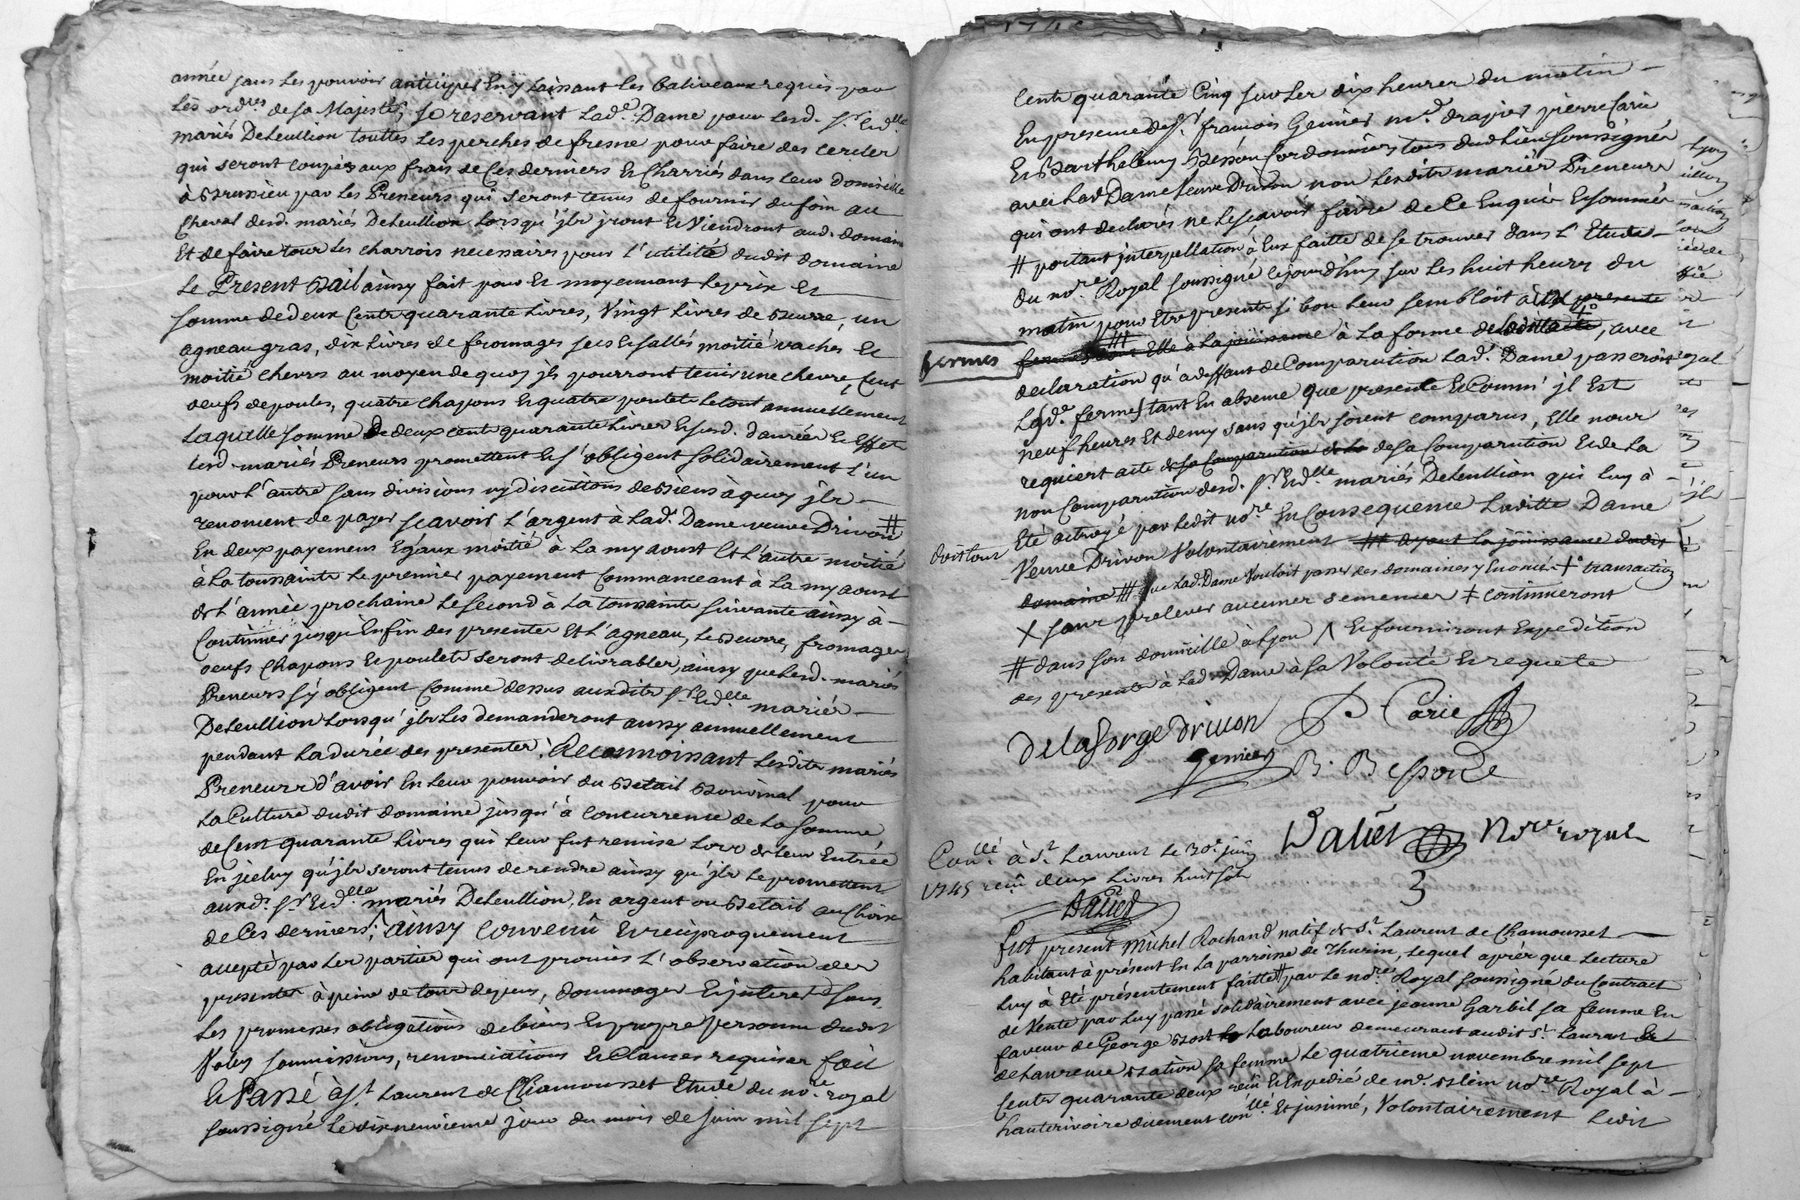 année sans les pouvoir anticiper En y Laissant Les baliveaux requis par
Les ord.res de sa Majesté, se reservant Lad.e Dame pour Lesd. s.r Et d.lle
mariés Deheullion touttes Les perches de fresne pour faire des cercler
qui seront coupées aux frais de Ces derniers Et Charriés dans leur domicille
à Brussieu par les Preneurs qui seront tenus de fournir du foin au
Cheval desd. mariés Deheullion Lorsqu'jls jront Et Viendront aud. domaine
Et de faire tous Les charrois necessaires pour L'utilité dudit domaine
Le Present Bail ainsy fait pour Et moyennant Le prix Et
somme de deux Cents quarante Livres, Vingt Livres de Beurre, un
agneau gras, dix Livres de fromages secs Et sallés moitié vaches Et
moitié chevres au moyen de quoy jls pourront tenir une chevre, Cent
oeufs de poules, quatre chapons Et quatre poulets Le tout annuellement
Laquelle somme De deux cents quarante Livres Et susd. danrées Et Effets
Lesd. mariés Preneurs promettent Et s'obligent solidairement L'un
pour L'autre sans divisions ny discutions de Biens à quoy jls
renoncent de payer sçavoir L'argent à Lad.e Dame veuve Drivon #
En deux payemens Egaux moitié à La my aoust Et L'autre moitié
à La toussaints Le premier payement Commanceant à La my aoust
de L'année prochaine Le second à La toussaints suivante ainsy à
Continuer jusqu'En fin des presentes Et L'agneau, Le Beurre, fromages
oeufs Chapons Et poulets seront delivrables, ainsy que Lesd. mariés
Preneurs s'y obligent comme dessus auxdits s.r Et d.lle mariés
Deheullion Lorsqu'jls Les demanderont aussy annuellement
pendant La durée des presentes, Reconnoissant Lesdits mariés
Preneurs d'avoir En leur pouvoir du Betail Bouvinal pour
La Culture dudit domaine jusqu'à concurrence de La somme
de Cent quarante Livres qui Leur fut remise Lors de leur Entrée
En jceluy qu'jls seront tenus de rendre ainsy qu'jls Le promettent
auxd. s.r Et d.lle mariés Deheullion, En argent ou Betail au Choix
de Ces derniers; ainsy Convenu Et reciproquement
accepté par Les parties qui ont promis L'observation des
presentes à peine de tous depens, dommages Et interets sous
Les promesses obligations de biens Et propre personne dudit
soumissions, renonciations Et Clauses requises fait
Et Passé à s.t Laurent de Chamousset Etude du no.re royal
soussigné Le dix neuvieme jour du mois de juin mil sept
Cents quarante Cinq sur Les dix heures du matin
En presence de s.r françois Genier m.d drapier pierre Carie
Et Barthelemy Besson Cordonniers tous dud. lieu soussignés
avec Lad. Dame Veuve Drivon non Lesdits mariés Preneurs
qui ont declarés ne Le sçavoir faire de Ce Enquis Et sommés
# portant jnterpellation à Eux faitte de se trouver dans L'Etude
du no.re Royal soussigné cejourd'huy sur Les huit heures du
matin pour Etre presents si bon Leur sembloit à la presente
ferme à La forme de dudit acte, avec
fermes
declaration qu'a deffaut de Comparution Lad.e Dame passeroit
Lad.e ferme tant En absence que presence Et Comm' jl Est
neuf heures Et demy sans qu'jls soient comparus, Elle nous
requiert acte de sa Comparution Et de La
non Comparution desd. s.r Et d.lle mariés Deheullion qui Luy à
Eté octroyé par Ledit no.re En Consequence Laditte Dame
Veuve Drivon Volontairement ayant La jouissance dudit
domaine # que Lad. Dame Vouloit passer des domaines y Enoncés + transaction
X sans prelever aucunes semences ‡ continueront
# dans son domicille à Lyon Λ Et fourniront Expedition
des presentes à Lad. Dame à sa Volonté Et requete
De la forge Drivon P. Carie
genier B. Besson
Daliés No.re royal
Con.llé à s.t Laurent Le 30.e juin
1745 reçu deux Livres huit sols
Daliés
3
fut present Michel Rochand natif de s.t Laurent de Chamousset
habitant à présent En La parroisse de Thurin, Lequel aprés que Lecture
Luy à Eté présentement faitte par Le no.re Royal soussigné du Contract
de Vente par Luy passé solidairement avec jeanne Garbil sa femme En
faveur de George Laboureur demeurant audit s.t Laurent Et
de Laurence sa femme Le quatrieme novembre mil sept
Cents quarante deux reçu Et Expedié de m.e no.re Royal à
hauterivoire duement con.llé Et jnsinué, Volontairement Ledit